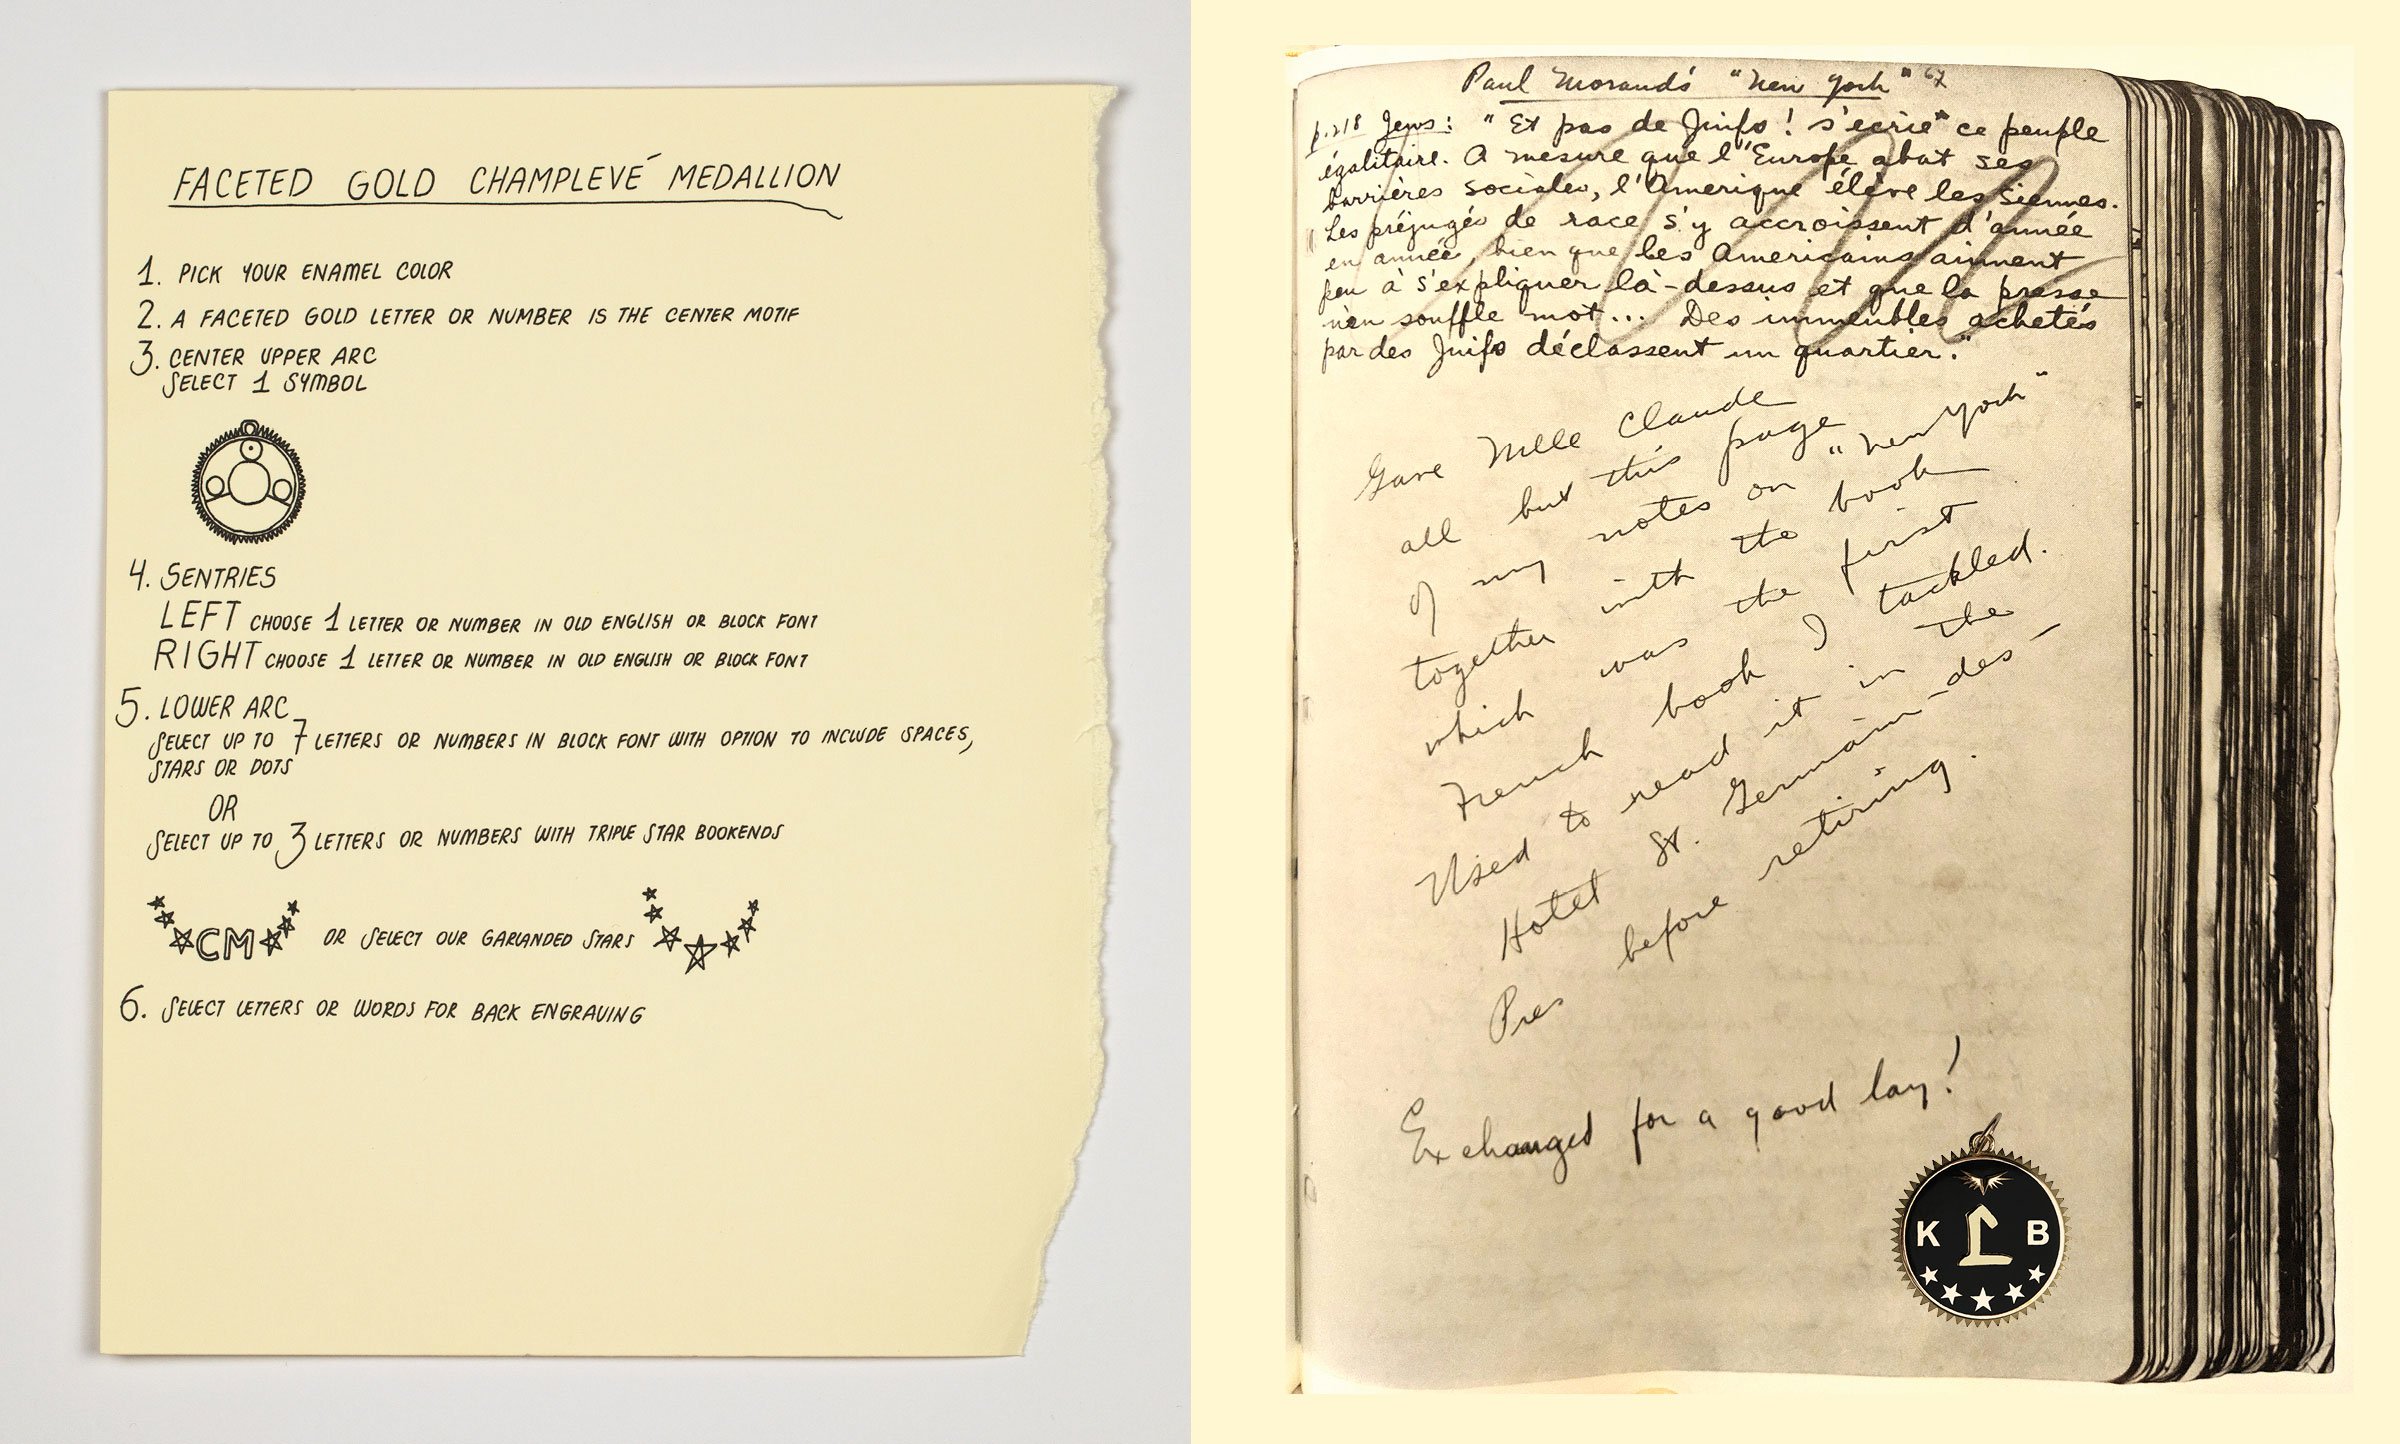 FACETED GOLD CHAMPLEVÉ MEDALLION
1. PICK YOUR ENAMEL COLOR
2. A FACETED GOLD LETTER OR NUMBER IS THE CENTER MOTIF
3. CENTER UPPER ARC
SELECT 1 SYMBOL
4. SENTRIES
LEFT CHOOSE 1 LETTER OR NUMBER IN OLD ENGLISH OR BLOCK FONT
RIGHT CHOOSE 1 LETTER OR NUMBER IN OLD ENGLISH OR BLOCK FONT
5. LOWER ARC
SELECT UP TO 7 LETTERS OR NUMBERS IN BLOCK FONT WITH OPTION TO INCLUDE SPACES,
STARS OR DOTS
OR
SELECT UP TO 3 LETTERS OR NUMBERS WITH TRIPLE STAR BOOKENDS
CM OR SELECT OUR GARLANDED STARS
6. SELECT LETTERS OR WORDS FOR BACK ENGRAVING
Paul Morand's "New York" 67
p.218 Jews: "Et pas de Juifs! s'écrie ce peuple
égalitaire. A mesure que l'Europe abat ses
barrières sociales, l'Amerique élève les siennes.
Les préjugés de race s'y accroissent d'année
en année, bien que les Americains aiment
peu à s'expliquer là-dessus et que la presse
n'en souffle mot... Des immeubles achetés
par des Juifs déclassent un quartier."
Gave Mlle Claude
all but this page
of my notes on "New York"
together with the book
which was the first
French book I tackled.
Used to read it in the
Hotel St. Germain-des-
Pres before retiring.
Exchanged for a good lay!
K L B